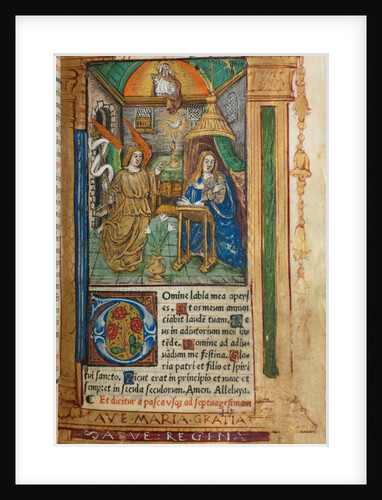 omine labia mea aperi
es. Et os meum annun
ciabit laudē tuam. De
us in adiutorium meu in
tēde. Domine ad adiu
uādum me festina. Glo
ria patri et filio et spiri
tui sancto. Sicut erat in principio et nunc et
semp: et in secula seculorum. Amen. Alleluya.
Et dicitur a pasca vsqȝ ad septuagesimam
AVE·MARIA·GRATIA
SALVE·REGINA